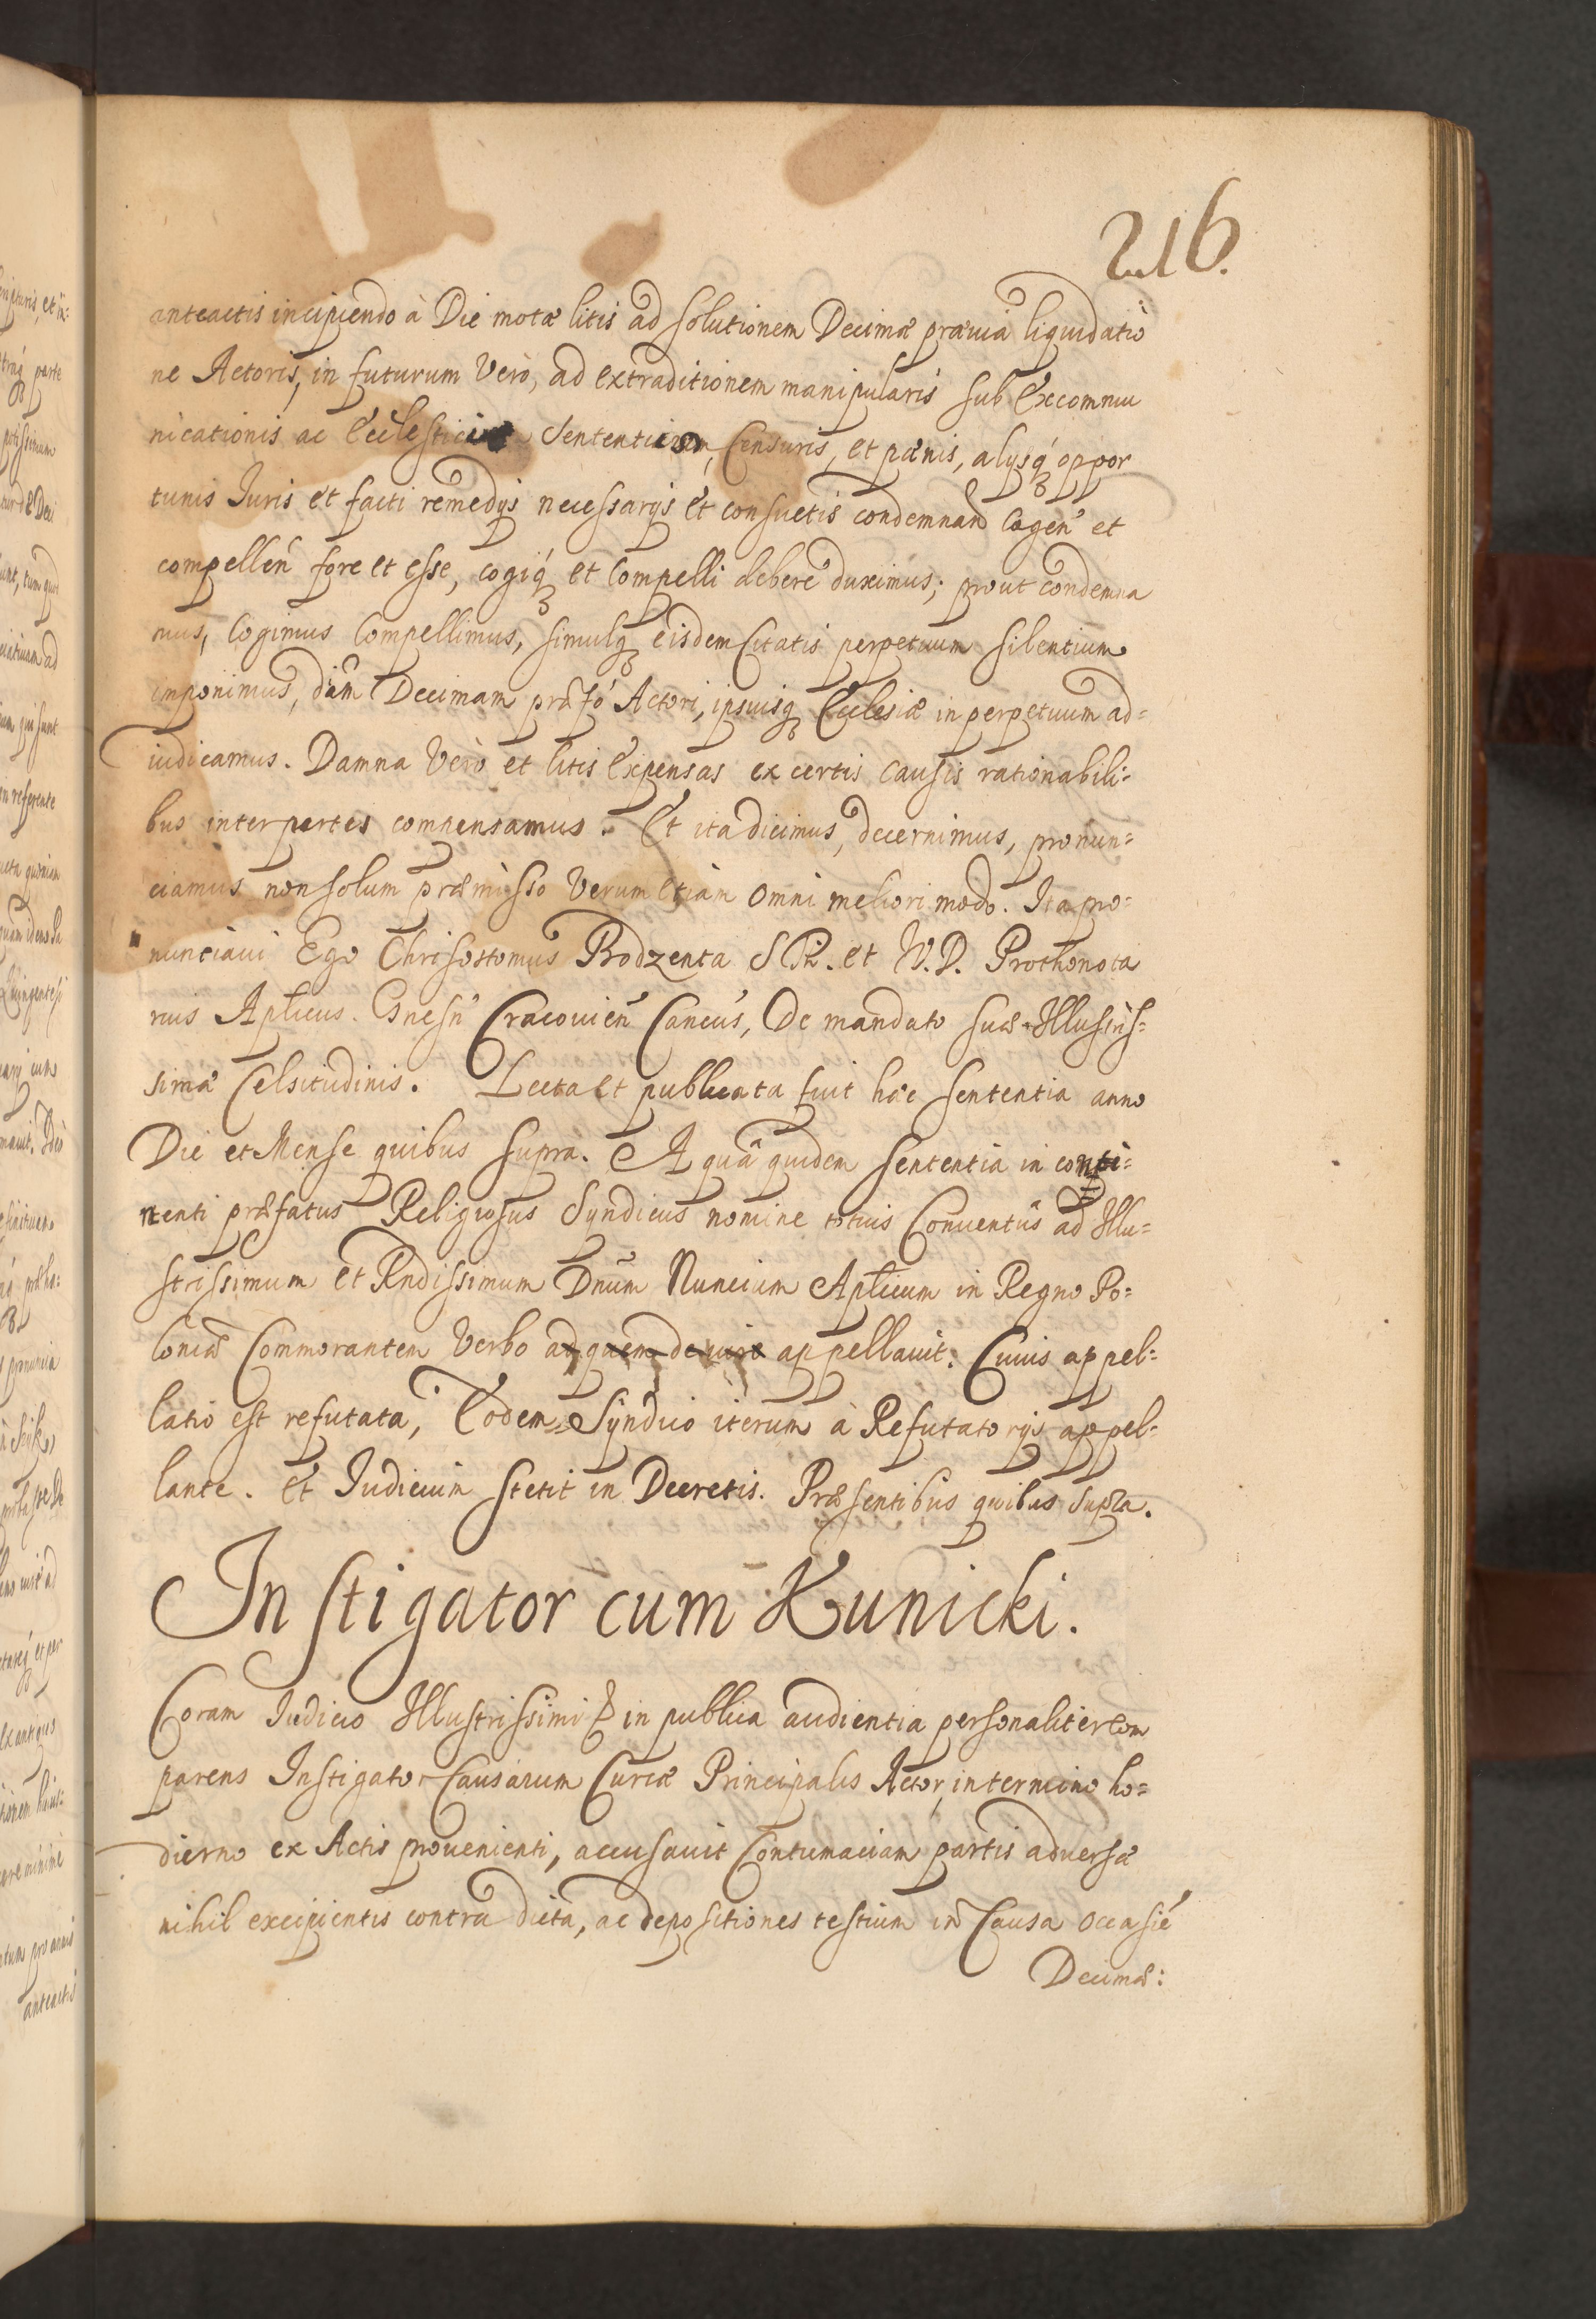 216.
anteactis incipiendo à Die motæ litis ad solutionem Decimæ præuia liquidatio
ne Actoris, in futurum Verò, ad extraditionem manipularis sub Excommu
nicationis ac Sententiarum, Censuris, et pœnis, alijsq́ oppor
tunis Iuris et facti remedijs necessarijs et consuetis condemnand Cogen̄ et
compellen̄ fore et esse, cogiq́ et Compelli debere duximus; prout condemna
mus, Cogimus Compellimus, simulq́ eisdem Citatis perpetuum silentium
imponimus, dictam Decimam præfo Actori, ipsiusq́ Ecclesiæ in perpetuum ad=
iudicamus. Damna Verò et litis Expensas ex certis Causis rationabili=
bus inter partes compensamus. Et ita dicimus, decernimus, pronun=
ciamus non solum præmisso Verum etiam omni meliori modo. Ita pro=
nunciaui Ego Chrisostomus Bodzenta SPh. et V.D. Prothonota
rius Aplicus. Gnesn̄ Cracouien̄ Cancus, De mandato suæ Illustris=
simæ Celsitudinis. Lecta et publicata fuit hæc sententia anno
Die et Mense quibus supra. A quâ quidem sententia in conti=
nenti præfatus Religiosus Syndicus nomine totius Conuentûs ad Illu=
strissimum et Rndissimum Dnum Nuncium Aplicum in Regno Po=
loniæ Commorantem Verbo ad quem de iure appellauit. Cuius appel=
latio est refutata, Eodem Syndico iterum à Refutatorijs appel=
lante. et Iudicium stetit in Decretis. Præsentibus quibus supra.
Instigator cum Kunicki.
Coram Iudicio Illustrissimi & in publica audientia personaliter Com
parens Instigator Causarum Curiæ Principalis Actor, in termino ho=
dierno ex Actis prouenienti, accusauit Contumaciam partis aduersæ
nihil excipientis contra dicta, ac depositiones testium in Causa occasie
Decimæ: